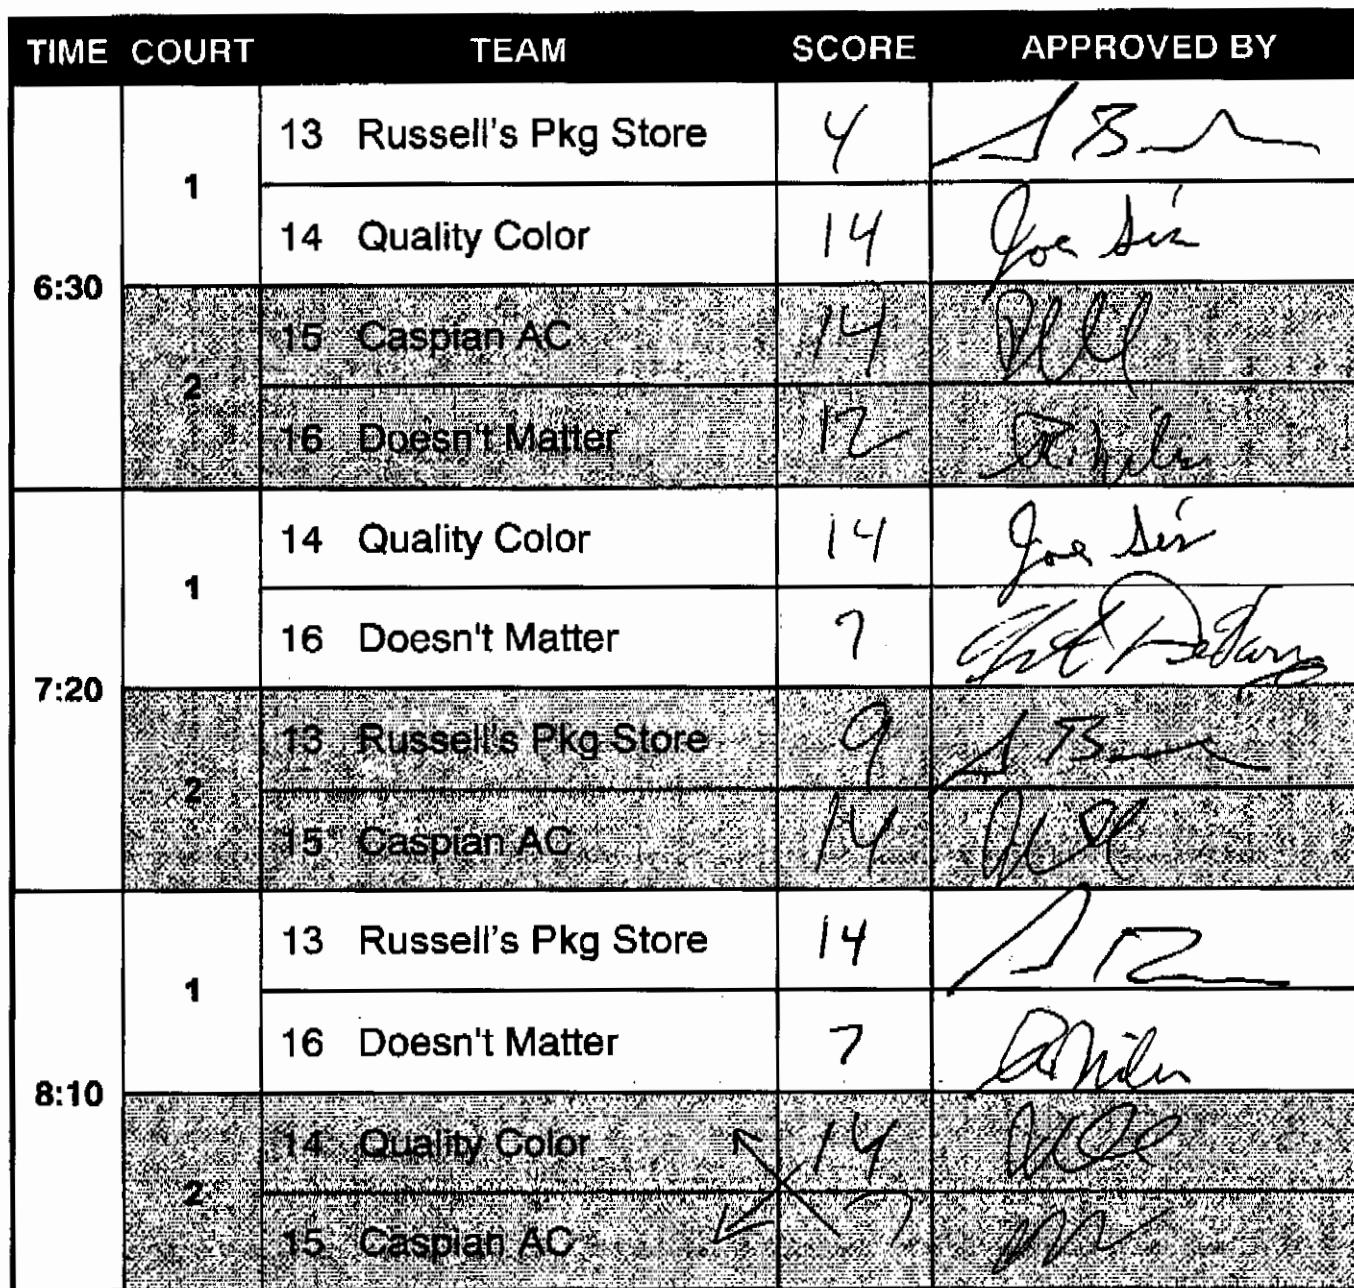 TIME COURT TEAM SCORE APPROVED BY
6:30
1
13 Russell's Pkg Store 4
14 Quality Color 14 Joe
2
15 Caspian AC 14
16 Doesn't Matter 12
7:20
1
14 Quality Color 14 Joe
16 Doesn't Matter 7
2
13 Russell's Pkg Store 9
15 Caspian AC 14
8:10
1
13 Russell's Pkg Store 14
16 Doesn't Matter 7
2
14 Quality Color 14
15 Caspian AC 7